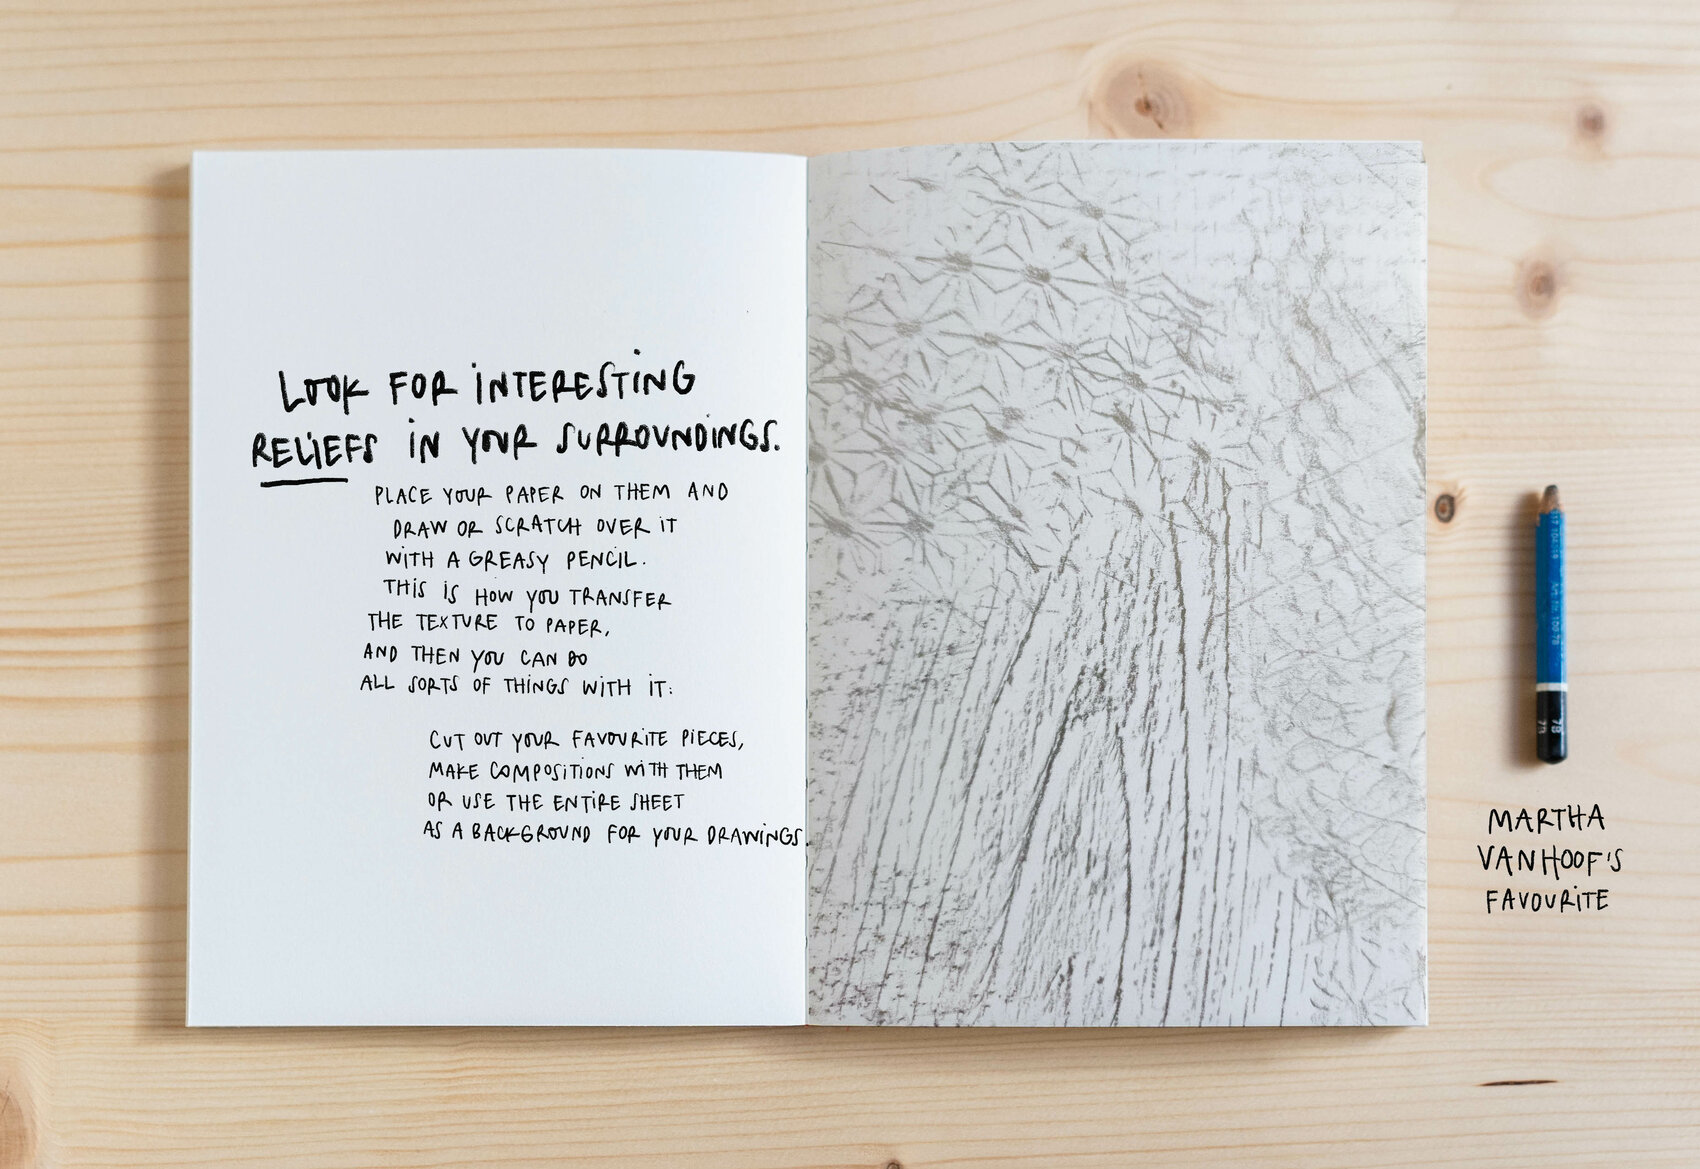 LOOK FOR INTERESTING
RELIEFS IN YOUR SURROUNDINGS.
PLACE YOUR PAPER ON THEM AND
DRAW OR SCRATCH OVER IT
WITH A GREASY PENCIL.
THIS IS HOW YOU TRANSFER
THE TEXTURE TO PAPER,
AND THEN YOU CAN DO
ALL SORTS OF THINGS WITH IT:
CUT OUT YOUR FAVOURITE PIECES,
MAKE COMPOSITIONS WITH THEM
OR USE THE ENTIRE SHEET
AS A BACKGROUND FOR YOUR DRAWINGS.
7B
MARTHA
VANHOOF'S
FAVOURITE